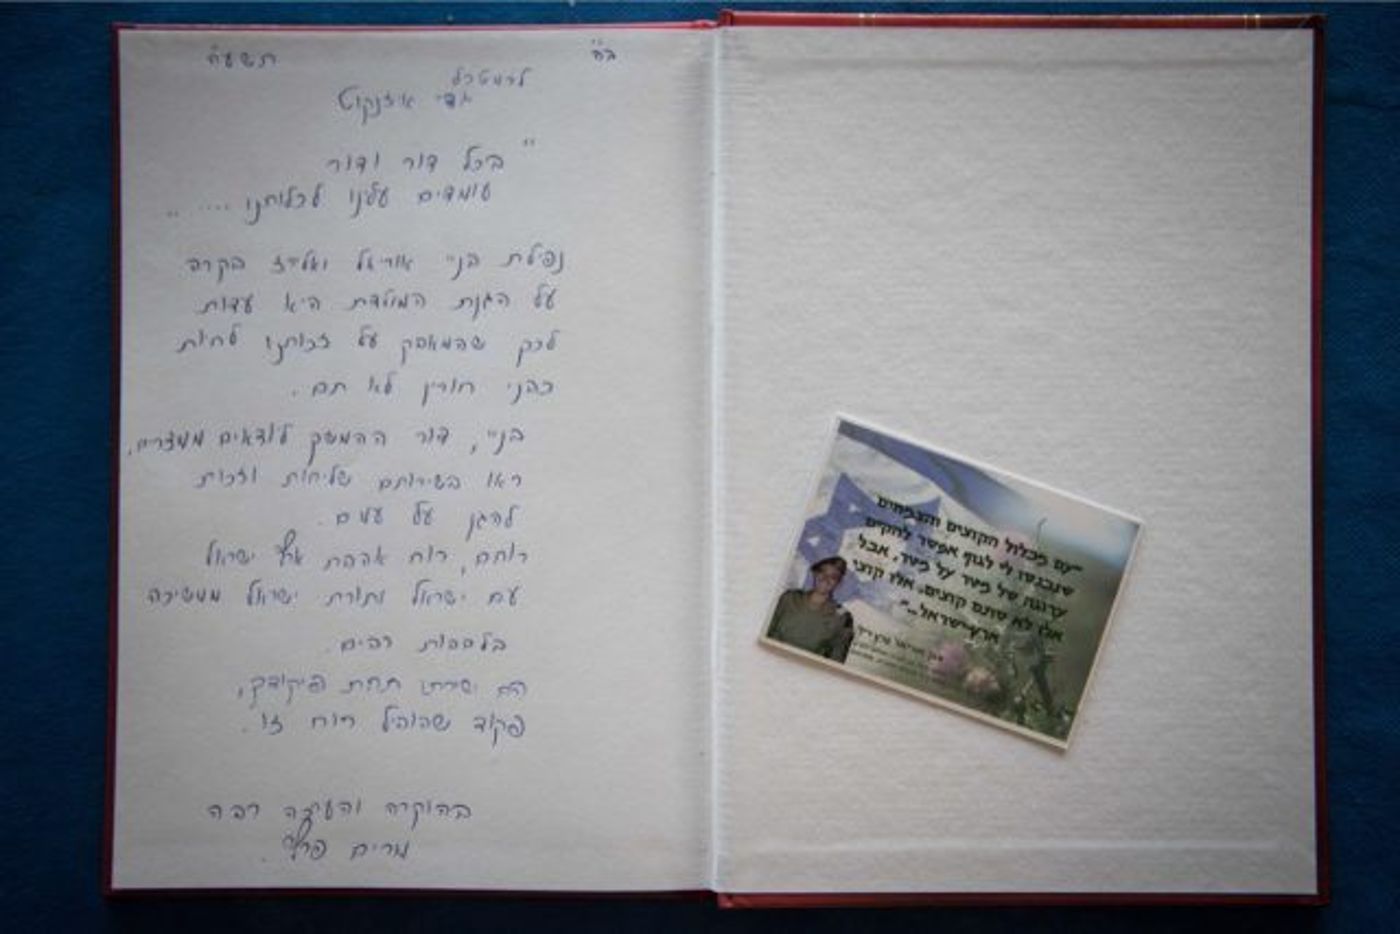 ב"ה
תשע"ח
לרמטכ"ל
גדי איזנקוט
"בכל דור ודור
עומדים עלינו לכלותנו ...."
נפילת בניי אוריאל ואלירז בקרב
על הגנת המולדת היא עדות
לכך שהמאבק על זכותנו לחיות
כבני חורין לא תם.
בניי, דור ההמשך ליוצאים ממצרים,
ראו בשירותם שליחות וזכות
להגן על עמם.
רוחם, רוח אהבת ארץ ישראל
עם ישראל ותורת ישראל ממשיכה
בלבבות רבים.
הם שירתו תחת פיקודך,
פיקוד שהוביל רוח זו.
בהוקרה והערכה רבה
מרים פרץ.
"עם מכלול הקוצים והצמחים
שנכנסו לי לגוף אפשר להקים
ערוגה של מטר על מטר, אבל
אלו לא סתם קוצים, אלו קוצי
ארץ-ישראל..."